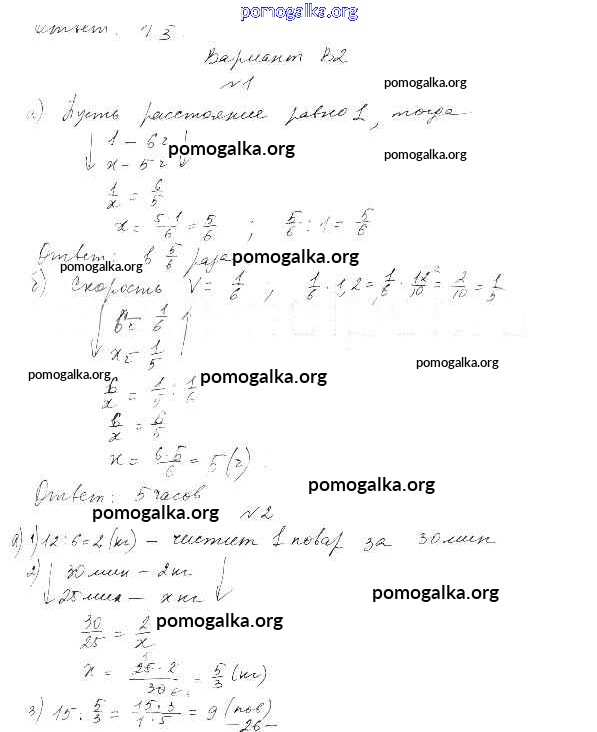 pomogalka.org
ответ. 15.
Вариант В2
№1
pomogalka.org
а) Пусть расстояние равно 1, тогда
1 - 6 г
pomogalka.org
pomogalka.org
x - 5 г
1/x = 6/5
x = 5·1/6 = 5/6 ; 5/6 : 1 = 5/6
Ответ: в 5/6 раза
pomogalka.org
pomogalka.org
б) Скорость V = 1/6 , 1/6 · 1,2 = 1/6 · 12/10 = 2/10 = 1/5
6 - 1/6
x - 1/5
pomogalka.org
pomogalka.org
pomogalka.org
6/x = 1/5 : 1/6
6/x = 6/5
x = 6·5/6 = 5 (г)
pomogalka.org
Ответ: 5 часов
pomogalka.org
№2
а) 1) 12 : 6 = 2 (кг) - чистит 1 повар за 30 мин
2) 30 мин - 2 кг
25 мин - x кг
pomogalka.org
30/25 = 2/x
pomogalka.org
x = 25·2/30 = 5/3 (кг)
pomogalka.org
3) 15 : 5/3 = 15·3/1·5 = 9 (пов)
-26-